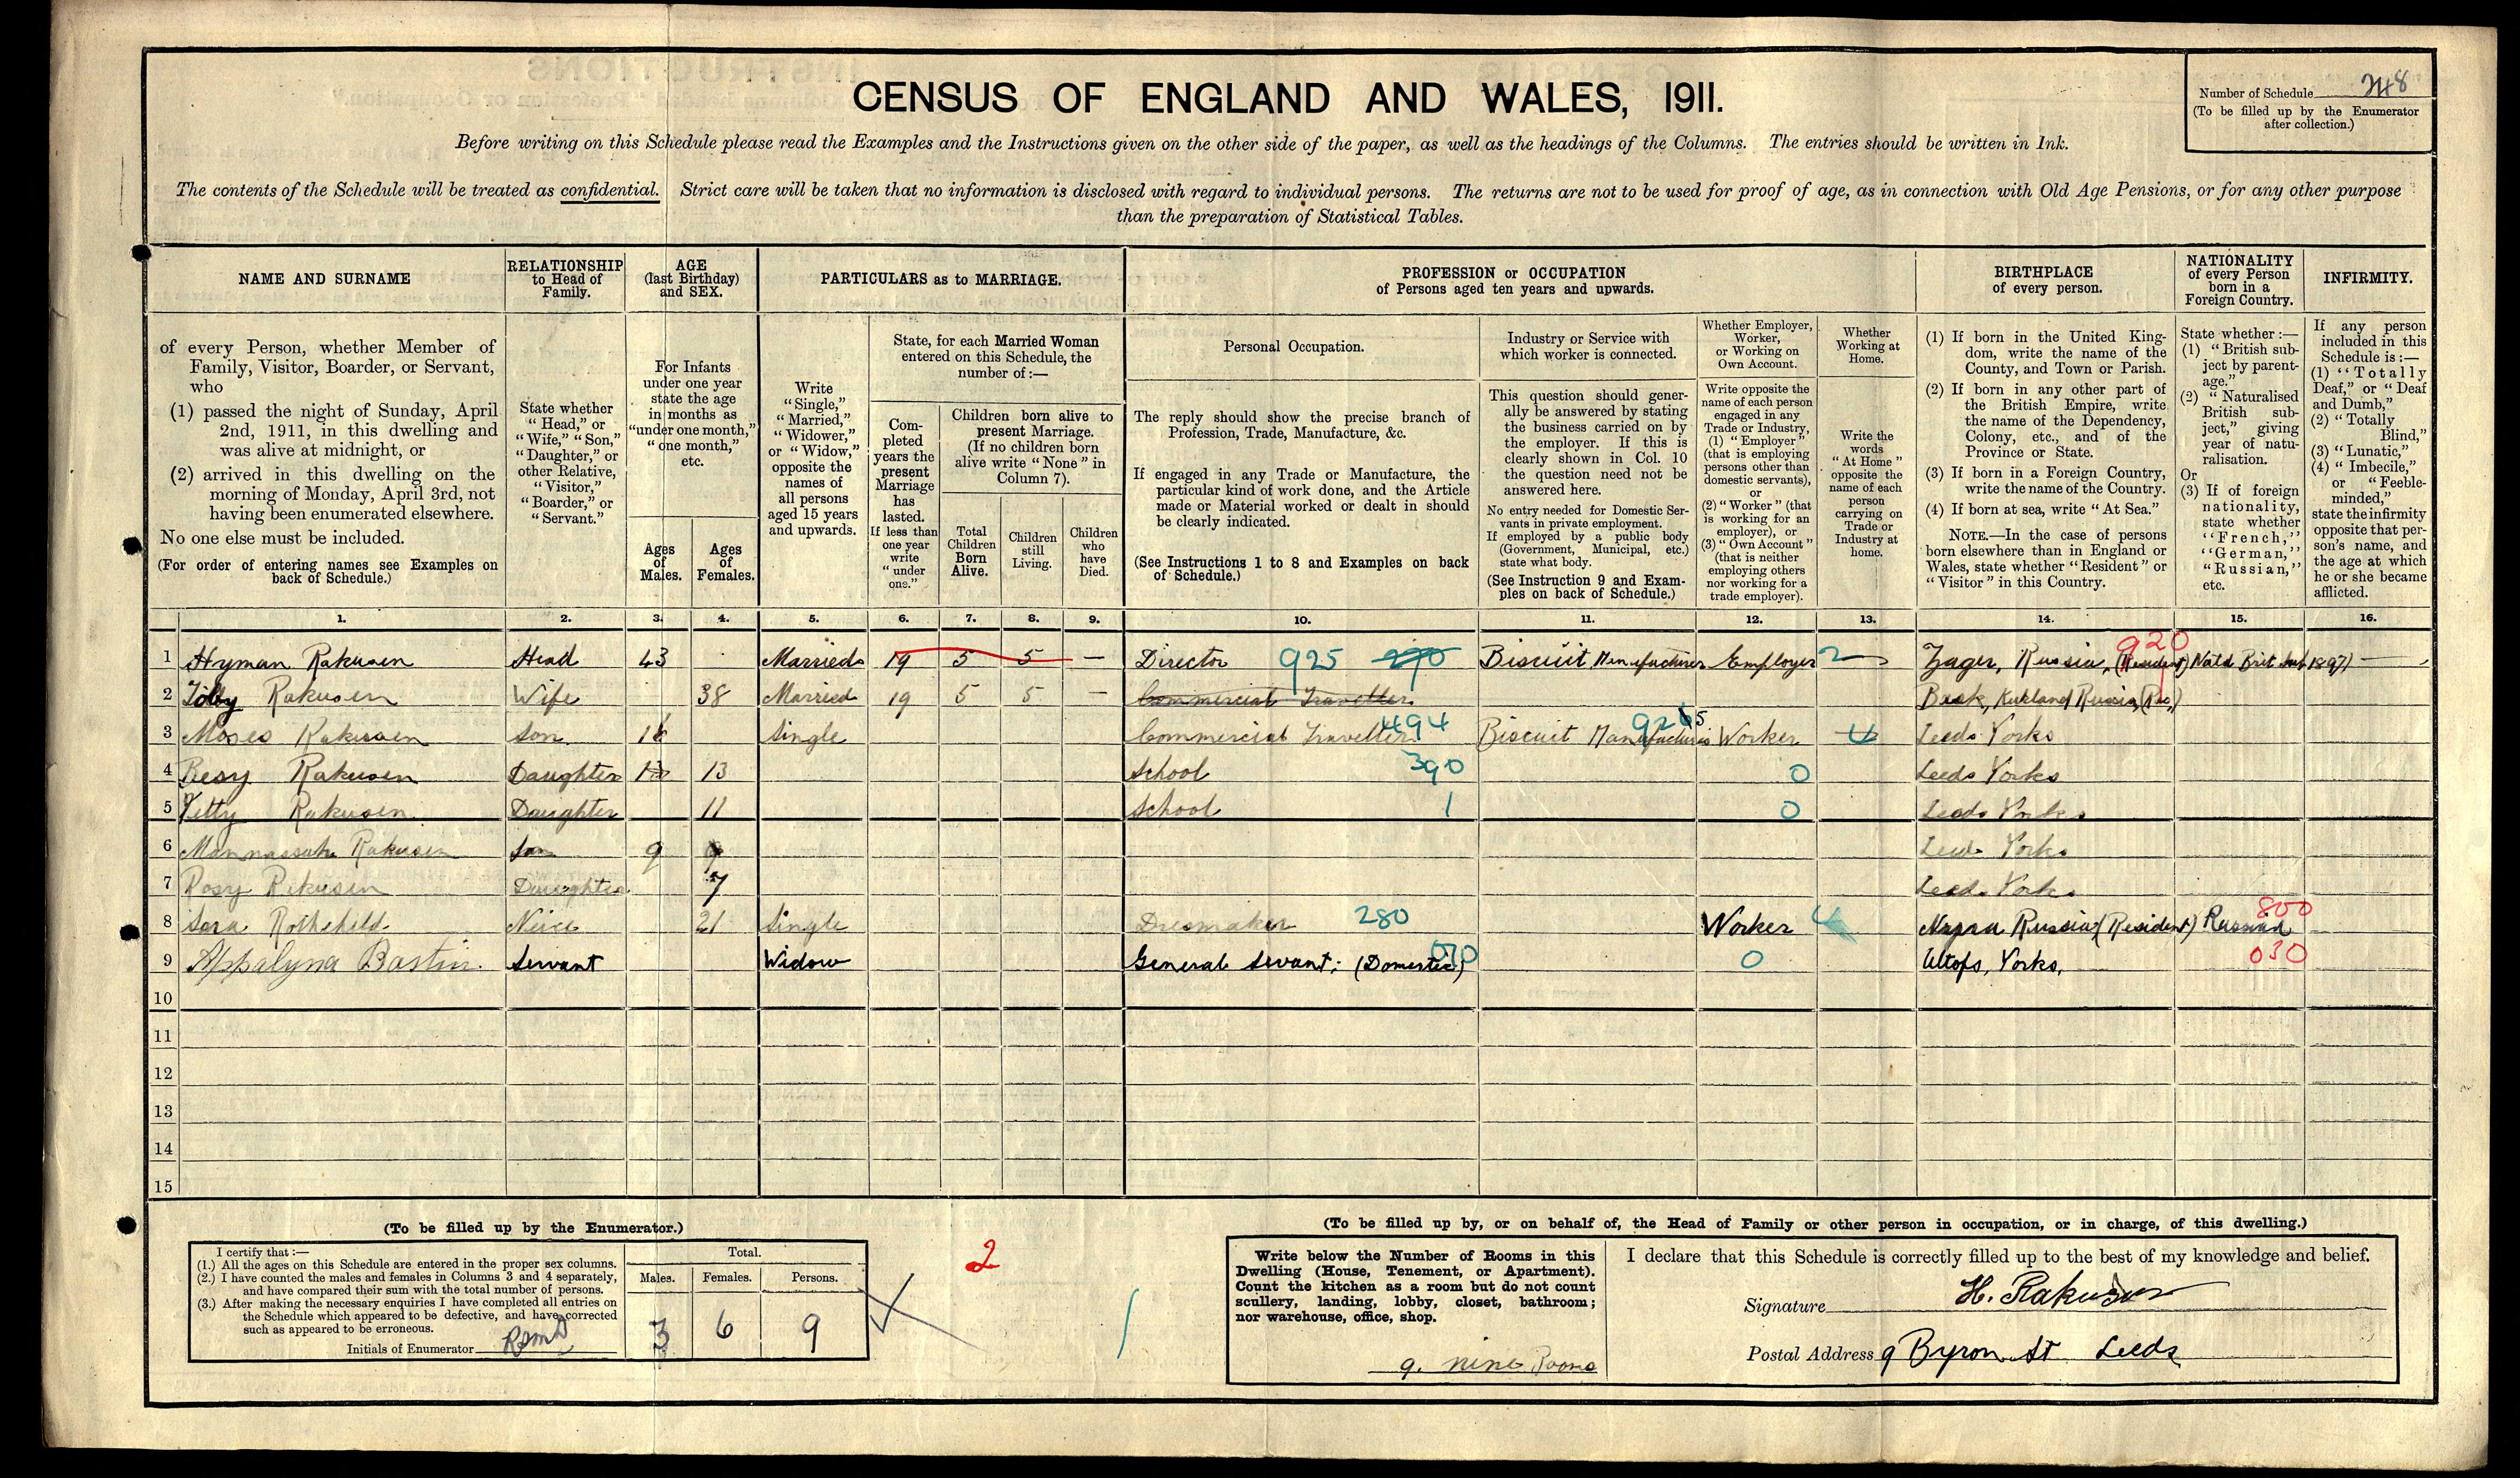 CENSUS OF ENGLAND AND WALES, 1911.
Number of Schedule 248
(To be filled up by the Enumerator
after collection.)
Before writing on this Schedule please read the Examples and the Instructions given on the other side of the paper, as well as the headings of the Columns. The entries should be written in Ink.
The contents of the Schedule will be treated as confidential. Strict care will be taken that no information is disclosed with regard to individual persons. The returns are not to be used for proof of age, as in connection with Old Age Pensions, or for any other purpose
than the preparation of Statistical Tables.
NAME AND SURNAME
of every Person, whether Member of
Family, Visitor, Boarder, or Servant,
who
(1) passed the night of Sunday, April
2nd, 1911, in this dwelling and
was alive at midnight, or
(2) arrived in this dwelling on the
morning of Monday, April 3rd, not
having been enumerated elsewhere.
No one else must be included.
(For order of entering names see Examples on
back of Schedule.)
RELATIONSHIP
to Head of
Family.
State whether
"Head," or
"Wife," "Son,"
"Daughter," or
other Relative,
"Visitor,"
"Boarder," or
"Servant."
AGE
(last Birthday)
and SEX.
For Infants
under one year
state the age
in months as
"under one month,"
"one month,"
etc.
Ages
of
Males.
Ages
of
Females.
PARTICULARS as to MARRIAGE.
Write
"Single,"
"Married,"
"Widower,"
or "Widow,"
opposite the
names of
all persons
aged 15 years
and upwards.
State, for each Married Woman
entered on this Schedule, the
number of:—
Com-
pleted
years the
present
Marriage
has
lasted.
If less than
one year
write
"under
one."
Children born alive to
present Marriage.
(If no children born
alive write "None" in
Column 7).
Total
Children
Born
Alive.
Children
still
Living.
Children
who
have
Died.
PROFESSION or OCCUPATION
of Persons aged ten years and upwards.
Personal Occupation.
The reply should show the precise branch of
Profession, Trade, Manufacture, &c.
If engaged in any Trade or Manufacture, the
particular kind of work done, and the Article
made or Material worked or dealt in should
be clearly indicated.
(See Instructions 1 to 8 and Examples on back
of Schedule.)
Industry or Service with
which worker is connected.
This question should gener-
ally be answered by stating
the business carried on by
the employer. If this is
clearly shown in Col. 10
the question need not be
answered here.
No entry needed for Domestic Ser-
vants in private employment.
If employed by a public body
(Government, Municipal, etc.)
state what body.
(See Instruction 9 and Exam-
ples on back of Schedule.)
Whether Employer,
Worker,
or Working on
Own Account.
Write opposite the
name of each person
engaged in any
Trade or Industry,
(1) "Employer"
(that is employing
persons other than
domestic servants),
or
(2) "Worker" (that
is working for an
employer), or
(3) "Own Account"
(that is neither
employing others
nor working for a
trade employer).
Whether
Working at
Home.
Write the
words
"At Home"
opposite the
name of each
person
carrying on
Trade or
Industry at
home.
BIRTHPLACE
of every person.
(1) If born in the United King-
dom, write the name of the
County, and Town or Parish.
(2) If born in any other part of
the British Empire, write
the name of the Dependency,
Colony, etc., and of the
Province or State.
(3) If born in a Foreign Country,
write the name of the Country.
(4) If born at sea, write "At Sea."
NOTE.—In the case of persons
born elsewhere than in England or
Wales, state whether "Resident" or
"Visitor" in this Country.
NATIONALITY
of every Person
born in a
Foreign Country.
State whether:—
(1) "British sub-
ject by parent-
age."
(2) "Naturalised
British sub-
ject," giving
year of natu-
ralisation.
Or
(3) If of foreign
nationality,
state whether
"French,"
"German,"
"Russian,"
etc.
INFIRMITY.
If any person
included in this
Schedule is:—
(1) "Totally
Deaf," or "Deaf
and Dumb,"
(2) "Totally
Blind,"
(3) "Lunatic,"
(4) "Imbecile,"
or "Feeble-
minded,"
state the infirmity
opposite that per-
son's name, and
the age at which
he or she became
afflicted.
1. 2. 3. 4. 5. 6. 7. 8. 9. 10. 11. 12. 13. 14. 15. 16.
1 Hyman Rakusen Head 43 Married 19 5 5 — Director 925 290 Biscuit Manufacturer Employer 2 Zager, Russia, (Resident) 920 Natd Brit Sub 1897) —
2 Rakusen Wife 38 Married 19 5 5 — Commercial Traveller Russia, (Res,)
3 Moses Rakusen Son 16 Single Commercial Traveller 494 Biscuit Manufacturer Worker 4 Leeds Yorks
4 Besy Rakusen Daughter 13 13 School 390 0 Leeds Yorks
5 Yetty Rakusen Daughter 11 School 1 0 Leeds Yorks
6 Mannassah Rakusen Son 9 9 Leeds Yorks
7 Rosy Rakusen Daughter 7 Leeds Yorks
8 Sara Rothefeld Neice 21 Single Dresmaker 280 Worker 4 Russia (Resident) Russian 800
9 Appalyna Bastin Servant Widow General Servant; (Domestic) 070 0 Altofs, Yorks, 030
10
11
12
13
14
15
(To be filled up by the Enumerator.)
I certify that:—
(1.) All the ages on this Schedule are entered in the proper sex columns.
(2.) I have counted the males and females in Columns 3 and 4 separately,
and have compared their sum with the total number of persons.
(3.) After making the necessary enquiries I have completed all entries on
the Schedule which appeared to be defective, and have corrected
such as appeared to be erroneous.
Initials of Enumerator
Total.
Males. Females. Persons.
3 6 9
2
(To be filled up by, or on behalf of, the Head of Family or other person in occupation, or in charge, of this dwelling.)
Write below the Number of Rooms in this
Dwelling (House, Tenement, or Apartment).
Count the kitchen as a room but do not count
scullery, landing, lobby, closet, bathroom;
nor warehouse, office, shop.
9. nine Rooms
I declare that this Schedule is correctly filled up to the best of my knowledge and belief.
Signature H. Rakusen
Postal Address 9 Byron St Leeds